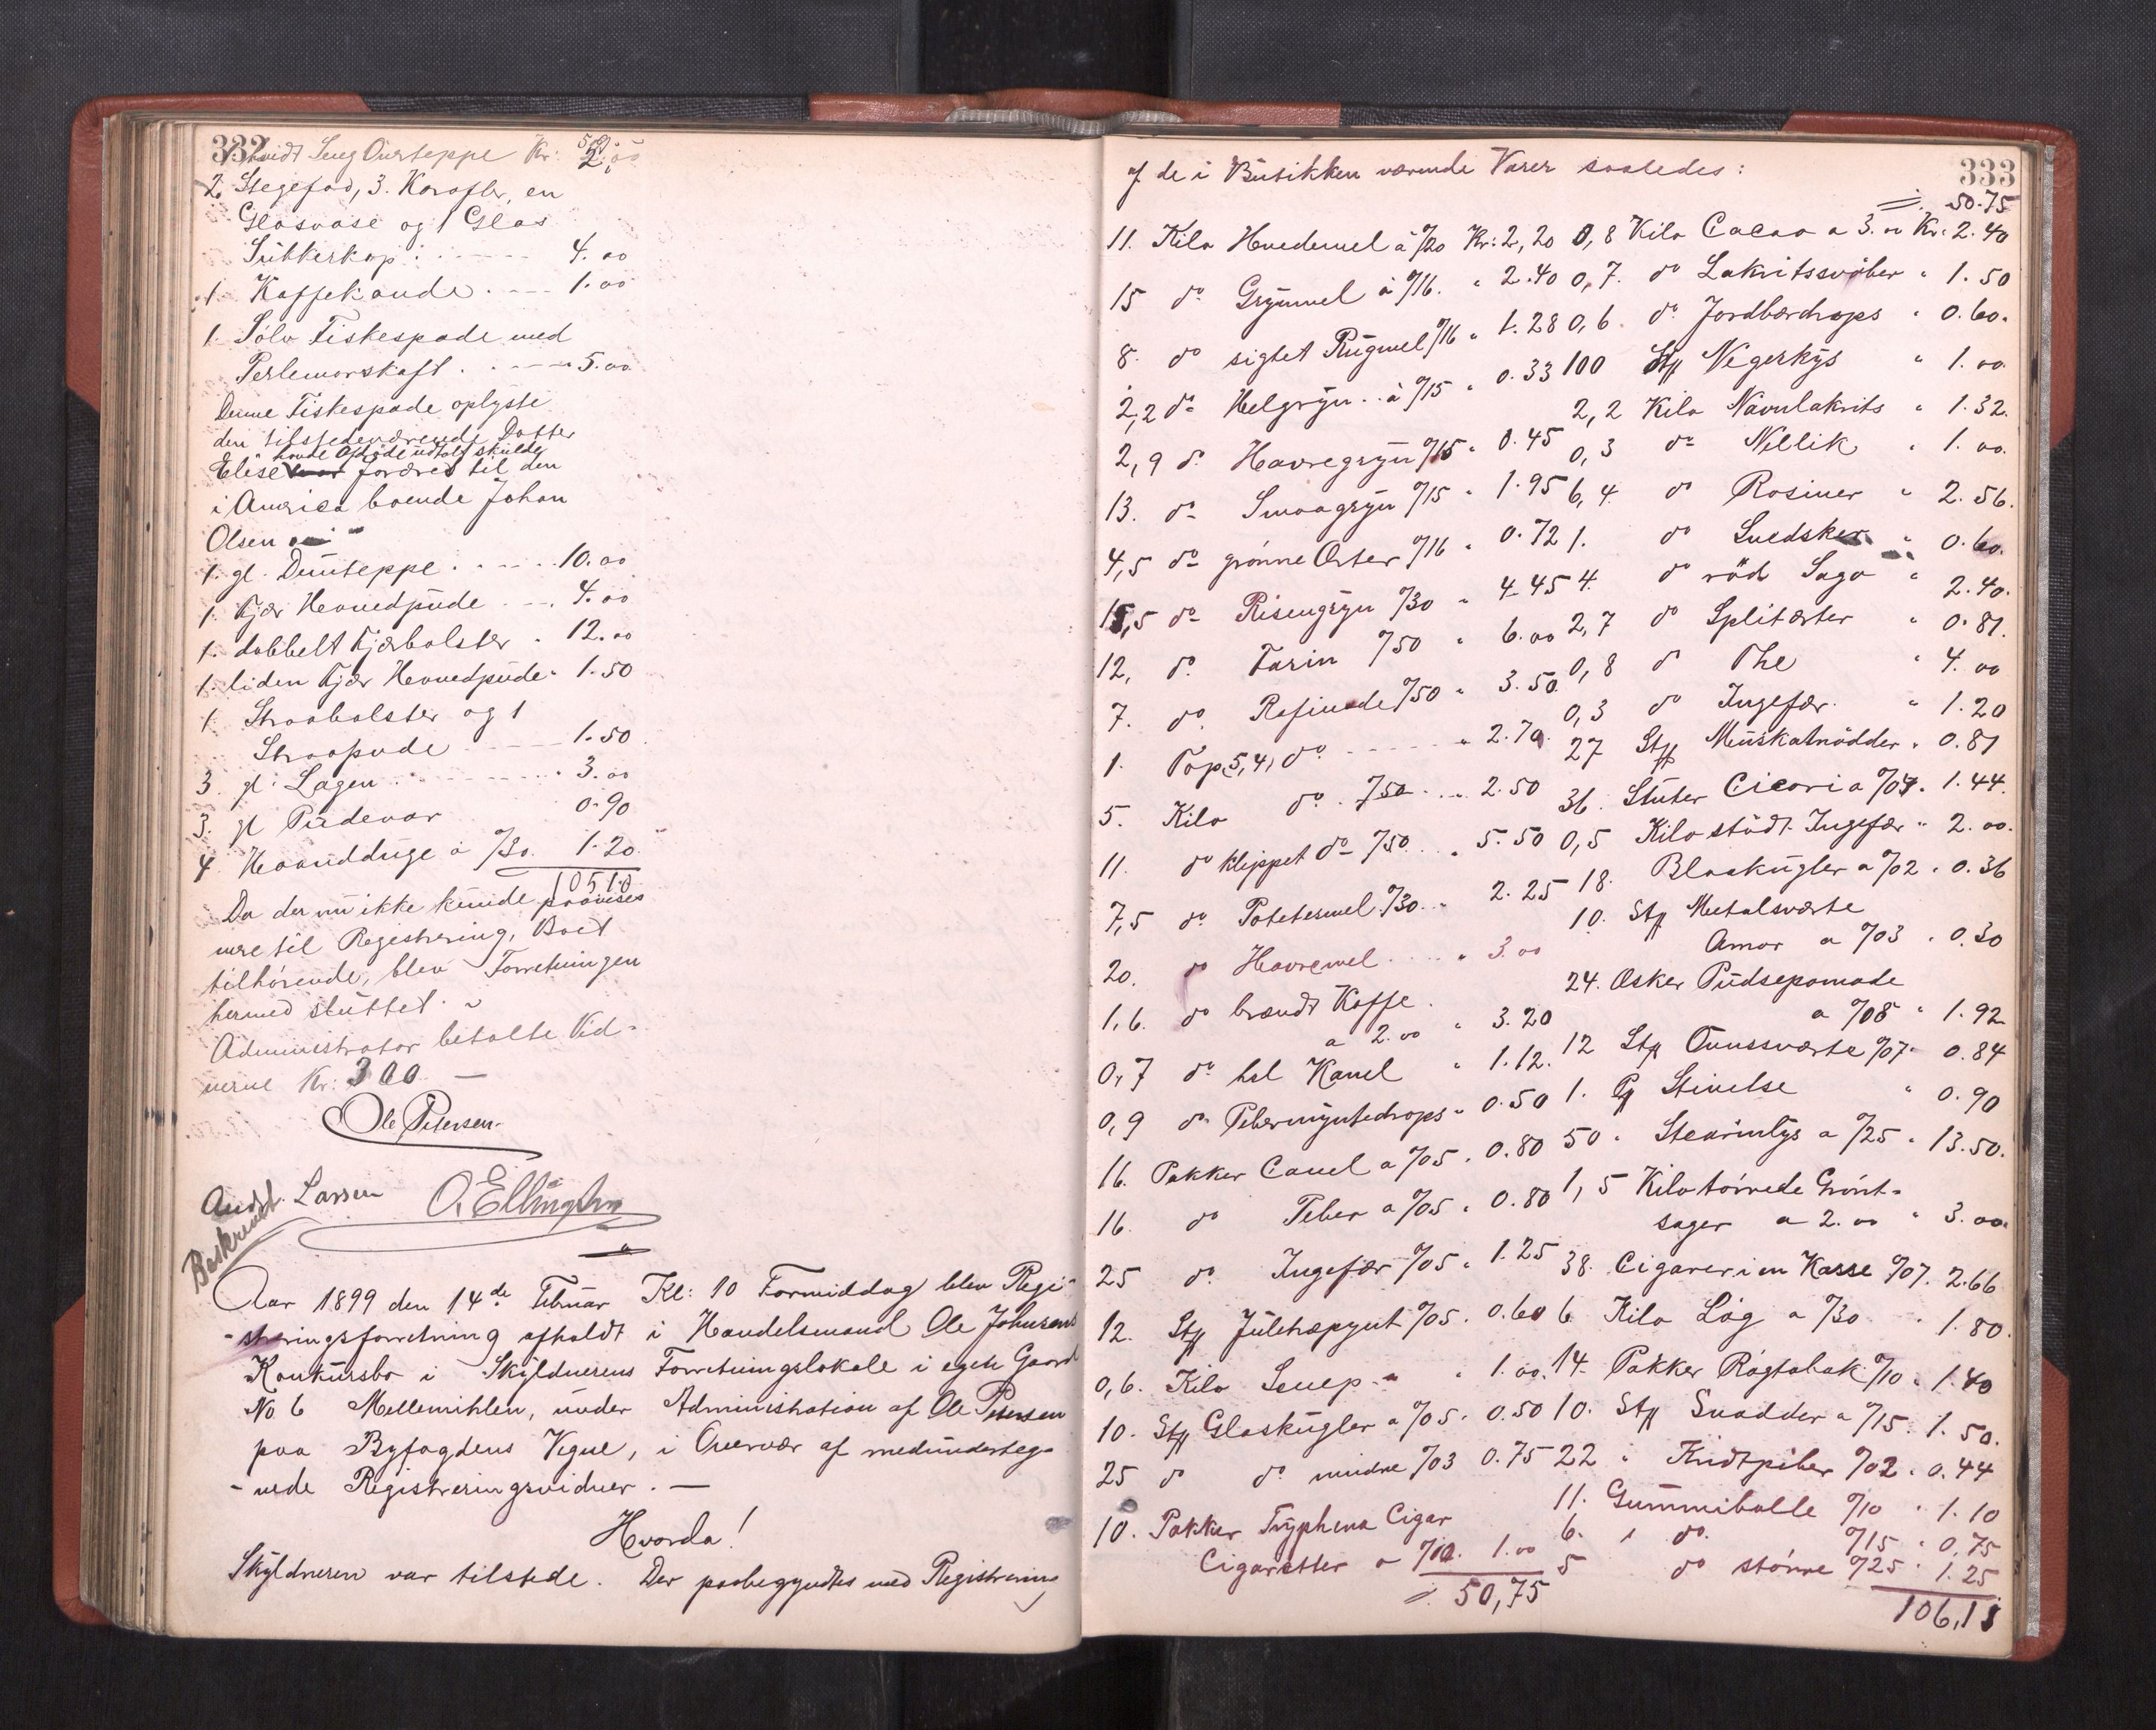 332
hvidt Seng Overteppe Kr: 2.00
2 Stegefad, 3. Karafler, en
Glasvase og 1 Glas
Sukkerkop 4.00
1. Kaffekande 1.00
1. Sølv Fiskespade med
Perlemorskaft 5.00
Denne Fiskespade oplyste
den tilstedeværende Datter
havde Afdøde udtalt skulde
Elise foræres til den
i America boende Johan
Olsen
1. gl. Dunteppe 10.00
1. Fjær Hovedpude 4.00
1. dobbelt Fjærbolster " 12.00
1. liden Fjær Hovedpude " 1.50
1. Straabolster og 1
Straapude 1.50
3. gl. Lagen " 3.00
3. gl Pudevar 0.90
4 Haandduge a %30. 1.20
10510
Da der nu ikke kunde paavises
mere til Registrering, Boet
tilhørende, blev Forretningen
hermed sluttet.
Administrator betalte Vid-
nerne Kr: 3 00 —
Ole Petersen
Andr. Larssen O. Ellingsen
Beskrevet
Aar 1899 den 14de Februar Kl: 10 Formiddag blev Regi-
-streringsforretning afholdt i Handelsmand Ole Johnsens
Konkursbo i Skyldnerens Forretningslokale i egen Gaard
No 6 Mellemihlen, under Administration af Ole Petersen
paa Byfogdens Vegne, i Overvær af medunderteg-
-nede Registreringsvidner. —
Hvorda!
Skyldneren var tilstede. Der paabegyndtes med Registrering
333
af de i Butikken værende Varer saaledes:
11. Kilo Hvedemel á %20 Kr: 2,20
15 do Grynmel á %16. " 2.40
8. do sigtet Rugmel %16 " 1.28
2,2 do Helgryn á %15 " 0.33
2,9 do Havregryn %15 " 0.45
13. do Smaagryn %15 " 1.95
4,5 do grønne Erter %16 " 0.72
15,5 do Risengryn %30 " 4.45
12, do Farin %50 " 6.00
7. do Rafinade %50 " 3.50
1. Top (5,4) do " 2.70.
5. Kilo do %50 " 2.50
11. do klippet do %50 " 5.50
7,5 do Potetesmel %30 " 2.25
20. do Havremel " 3.00
1,6. do brændt Kaffe
a 2.00 " 3.20
0,7 do hel Kanel " 1.12.
0,9 do Pebermyntedrops " 0.50
16. Pakker Canel a %05 " 0.80
16. do Peber a %05 " 0.80
25 do Ingefær %05 " 1.25
12. Stk Juletræpynt %05 " 0.60
0,6. Kilo Senep " 1.00.
10. Stk Glaskugler a %05 " 0.50
25 do do mindre %03 0.75
10. Pakker Tryphena Cigar
Cigaretter a %10. 1.00
50,75
50.75
0,8 Kilo Cacao a 3.00 Kr. 2.40
0,7. do Lakritssvøber " 1.50
0,6 do Jordbærdrops " 0.60.
100 Stk Negerkys " 1.00.
2,2 Kilo Navnlakrits " 1.32.
0,3 do Nellik " 1.00.
6,4. do Rosiner " 2.56.
1. do Svedsker " 0.60.
4. do rød Sago " 2.40.
2,7 do Spliterter " 0.81.
0,8 do The " 4.00
0,3 do Ingefær " 1.20
27 Stk Muskatnødder " 0.81
36. Stuter Cicori a %04. 1.44.
0,5 Kilo stødt Ingefær " 2.00.
18. Blaakugler a %02 " 0.36
10. Stk Metalsværte
Amor a %03 " 0.30
24. Æsker Pudsepomade
a %08 " 1.92
12 Stk Ovnssværte %07. 0.84
1. Pk Stivelse " 0.90
50 " Stearinlys a %25 " 13.50.
1,5 Kilo tørrede Grønt-
sager a 2.00 " 3.00.
38. Cigarer i en Kasse %07. 2.66
6 Kilo Løg a %30 " 1.80.
14. Pakker Røgtobak %10 " 1.40
10. Stk Snadder a %15. 1.50.
22 " Kridtpiber %02 " 0.44
11. Gummibolle %10 " 1.10
6. " do. %15 " 0,75
5 do større %25 " 1.25
106,11